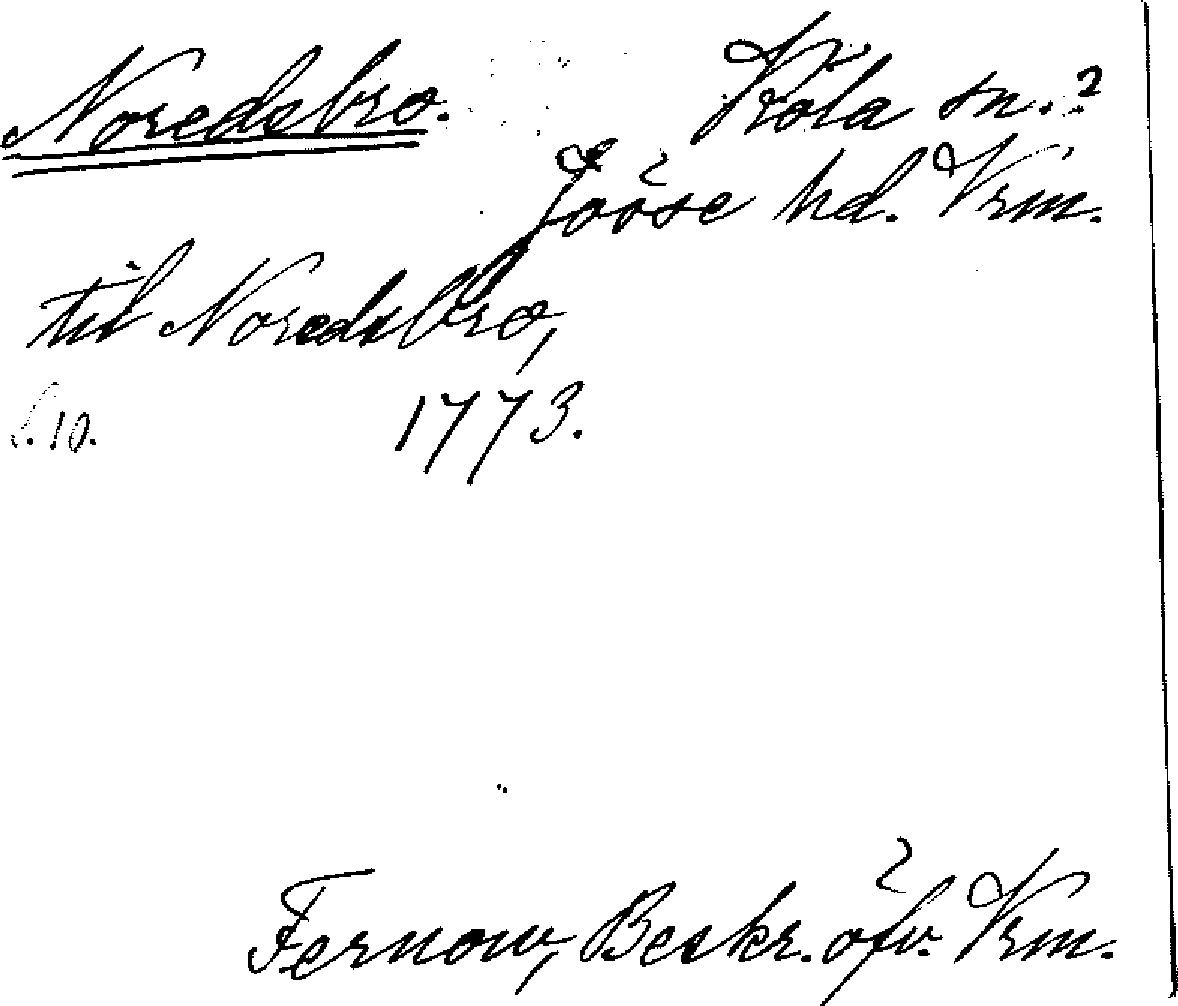 Noredsbro. Köla sn.?
Jösse hd. Vrm.
til Noredsbro,
s. 10. 1773.
Fernow, Beskr. öfv. Vrm.